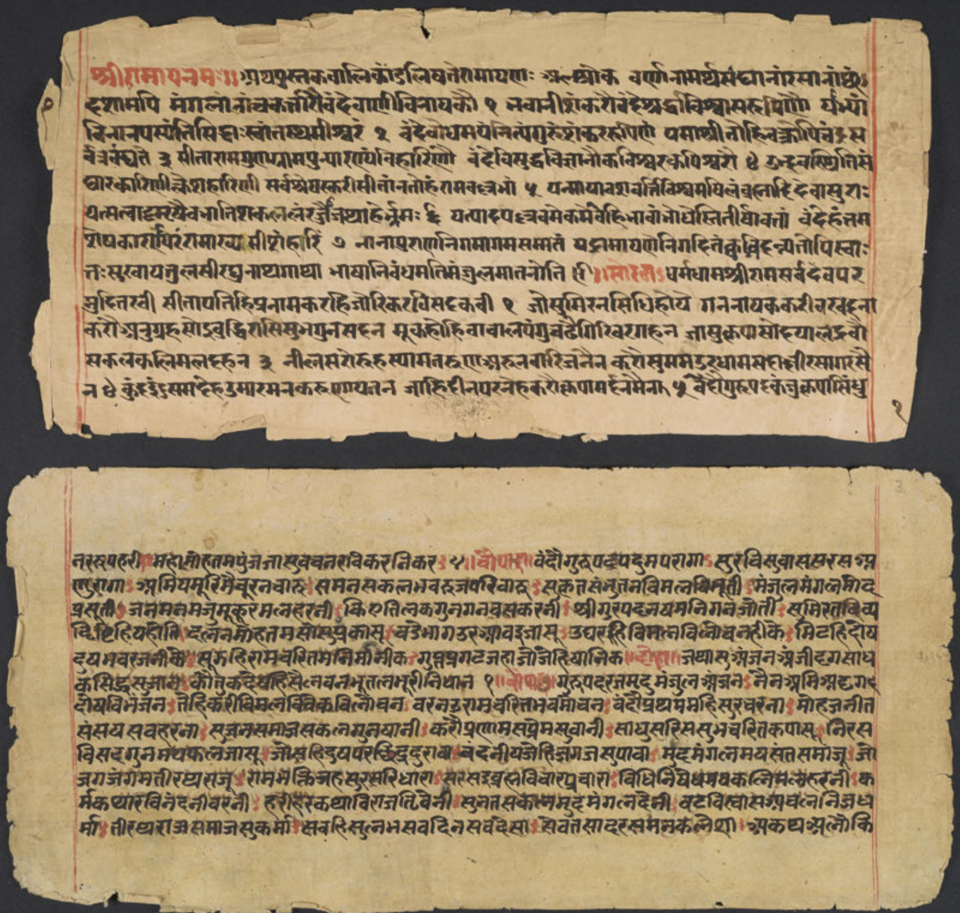 श्रीरामायनमः॥ अथपुस्तकवालिकांडलिषतेरामायणः अलश्लोक वर्णानामर्थसंघानांरसानांछं।
दशामपि मंगलानांचकर्त्तारौवंदेवाणीविनायकौ १ भवानीशंकरौवंदेश्रद्धाविश्वासरूपिणौ याभ्यां
विनानपस्यंतिसिद्धाःस्वांतस्थमीश्वरं २ वंदेवोधमयंनित्यंगुरुंशंकररूपिणं यमाश्रीतोहिवक्रोपिचंद्रस
र्वत्रवंद्यते ३ सीतारामगुणग्रामपुन्यारण्यविहारिणौ वंदेविसुद्धविज्ञानौकविश्वरकपिश्वरौ ४ उद्भवस्थितिसं
घारकारिणीक्लेशहारिणी सर्वश्रेयस्करीसीतांनतोहंरामवल्लभां ५ यन्मायावशवर्त्तिविश्वमषिलंब्रह्मादिदेवासुराः
यत्सत्वाद भातिशकलं रज्जौयथाहेर्भ्रमः ६ यत्पाद भवांभोधेस्तितीर्षावतां वंदेहंतम
शेषकारणपरंरामाख्यमीशंहरिं ७ नानापुराणनिगमागमसमातं यद्रामायणेनिगदितंक्वचिदन्यतोपिस्वा
तःसुखायतुलसीरघुनाथगाथा भाषानिवंधमतिमंजुलमातनोति ॥सोरठा॥ धर्मधामश्रीरामसर्वदेवपर
मुदितरवी सीतापतिहिप्रनामकरहिजोरिकरविसदकवी १ जोसुमिरनसिधिहोये गननायककरीवरवदना
करौअनुग्रहसोइबुद्धिरासिसुभगुनसदन मूकहोहिवाचालपंगुचढैगिरिवरगहन जासुकृपासोदयालद्रवौ
सकलकलिमलदहन ३ नीलसरोरुहस्यामतरुणअरुनवारिजनैन करौसुमम सदाछीरसागरसै
न ४ कुंदइंदुसमदेहउमारमनकरुणायतन जाहिदीनपरनेहकरोकृपामर्दनमैना ५ वंदौगुरुपदकंजकृपासिंधु
१
नररूपहरी महामोहतमपुंजजासुवचनरविकरनिकर ५ चौपाई वंदौगुरुपदपदुमपरागा सुरचिसुवाससरसअ
णुरागा अमियमूरिमैचूरनचारू समनसकलभवरुजपरिवारू सुकृतसंभुतनविमलविभूती मंजुलमंगलमोद
प्रसूती जनमनमंजुमूकूरमलहरनी किएतिलकगुनगनवसकरनी श्रीगुरपदनषमनिगनजोती सुमिरतदिव्य
द्रिष्टिहियहोति दलनमोहतमसोसुप्रकासु वडेभागउरआवइजासु उघरहिविमलविलोचनहीके मिटहिदोष
दुषभवरजनीके सुझहिरामचरितमनिमानीक गुप्तप्रगटजहाजोजेहिषानिक दोहा जथासुअंजनअंजीदृगसाध
कसिद्धसुजान कौतुकदेषहिसैलवनभूतलभूरीनिधान १ चौपाई गुरुपदरजमृदुमंजुलअंजन नैनअमिअदृगदृ
दोषविभंजन तेहिकरीविमलविवेकविलोचन वरनउरामचरितभवमोचन वंदौप्रथममहिसुरचरना मोहजनीत
संसयसवहरना सुजनसमाजसकलगुनषानी करौप्रणामसप्रेमसुवानी साधुसरिससुभचरितकपासु निरस
विसदगुनमयफलजासू जोसहिदुषपरछिद्रदुरावा वदनीयजेहिजगजसपावा मुदमंगलमयसंतसमाजू जो
जगजंगमतीरथराजू रामभक्तिजहसुरसरिधारा सरसइब्रह्मविचारप्रचारा विधिनिषेधमयकलिमलहरनी क
र्मकथारविनंदनीवरनी हरीहरकथाविराजतिवेनी सुनतसकलमुदमंगलदेनी वटविस्वासअचलनिजध
र्मा तीरथराजसमाजसुकर्मा सवहिसुलभसवदिनसवदेसा सेवतसादरसमनकलेशा अकथअलौकि